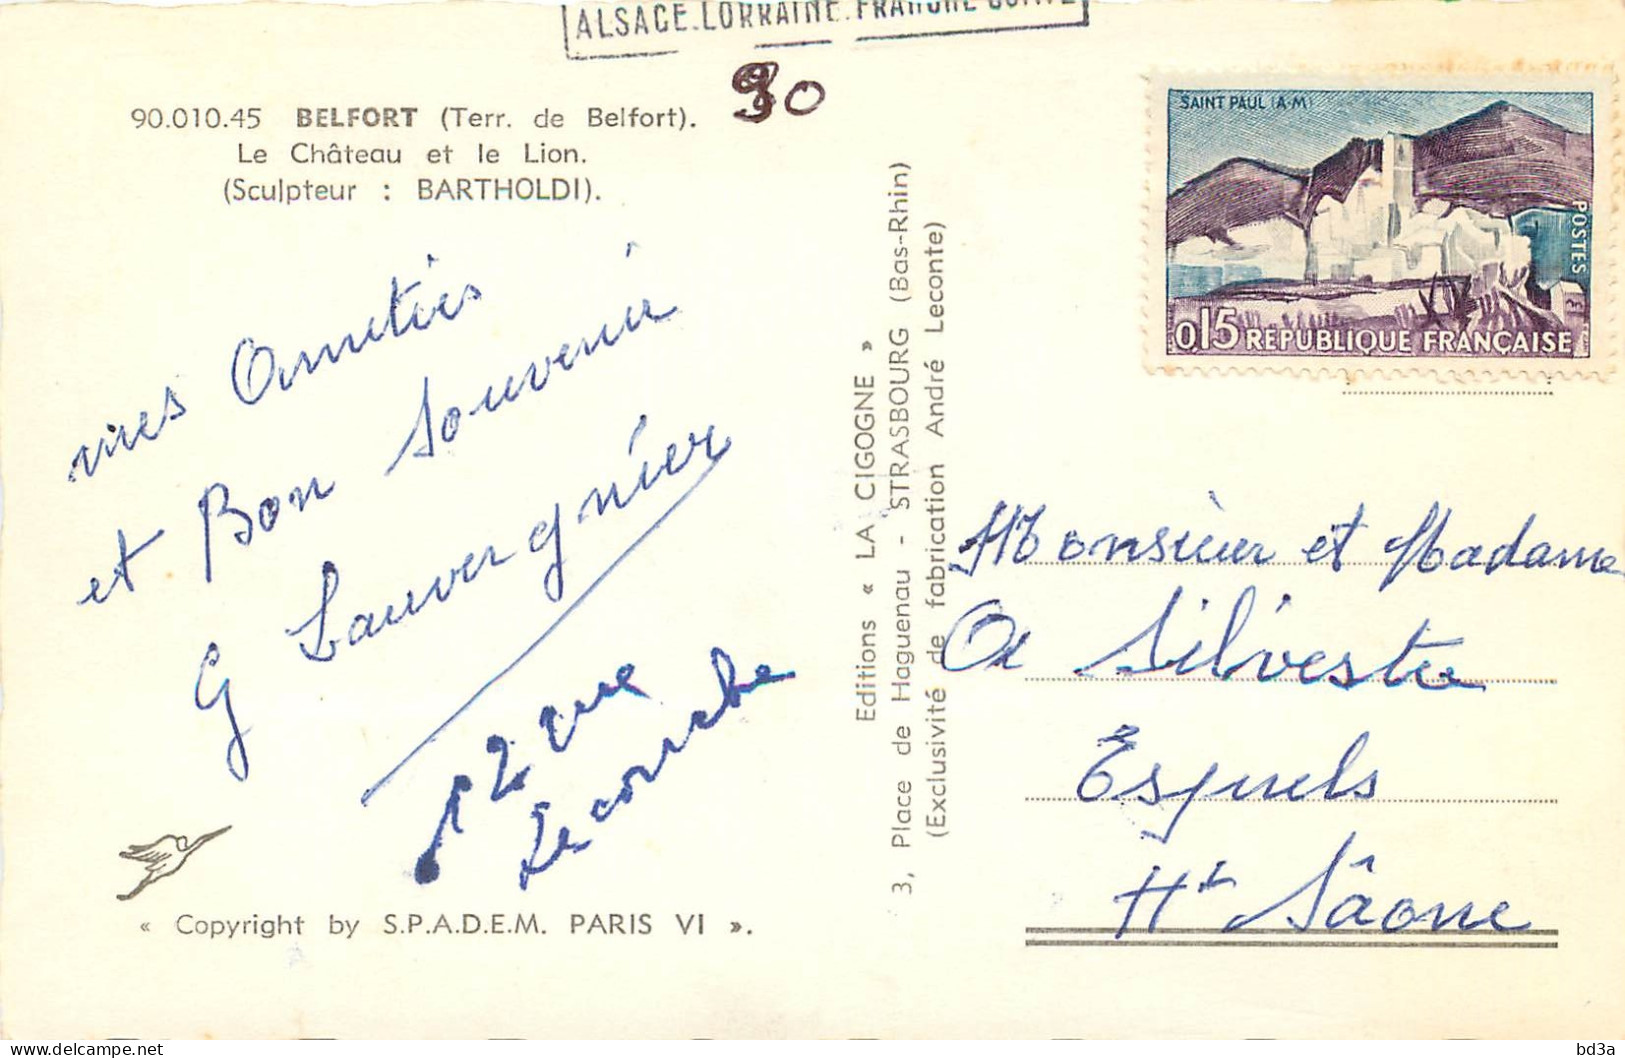 ALSACE.LORRAINE.FRANCHE-COMTÉ
90
90.010.45 BELFORT (Terr. de Belfort).
Le Château et le Lion.
(Sculpteur : BARTHOLDI).
SAINT PAUL (A-M)
POSTES
0,15 RÉPUBLIQUE FRANÇAISE
et Bon Souvenir
G Lauvergnier
12 rue
Lecourbe
« Copyright by S.P.A.D.E.M. PARIS VI ».
Editions « LA CIGOGNE »
3, Place de Haguenau - STRASBOURG (Bas-Rhin)
(Exclusivité de fabrication André Leconte)
Monsieur et Madame
Silvestre
Esprels
Hte Sâone
bd3a